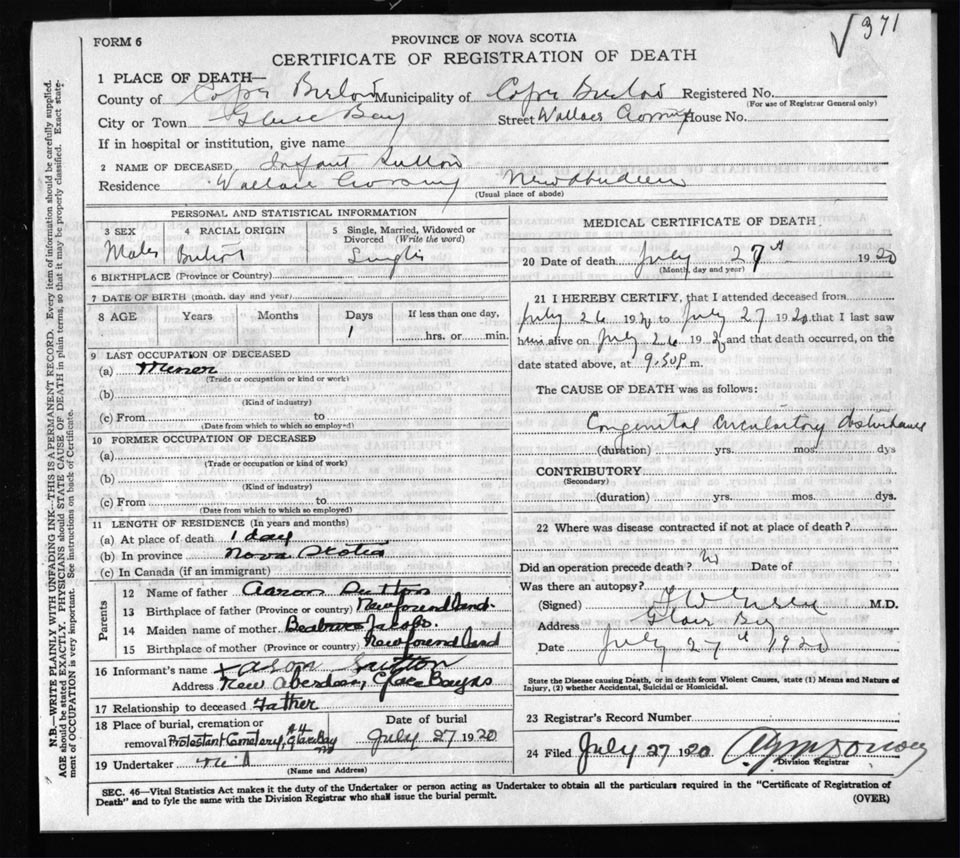 √ 371
FORM 6
PROVINCE OF NOVA SCOTIA
CERTIFICATE OF REGISTRATION OF DEATH
1 PLACE OF DEATH—
County of Cape Breton Municipality of Cape Breton Registered No.
(For use of Registrar General only)
City or Town Glace Bay Street Wallace Crossing House No.
If in hospital or institution, give name
2 NAME OF DECEASED Infant Sutton
Residence Wallace Crossing New Aberdeen
(Usual place of abode)
PERSONAL AND STATISTICAL INFORMATION
3 SEX 4 RACIAL ORIGIN 5 Single, Married, Widowed or Divorced (Write the word)
Male British Single
6 BIRTHPLACE (Province or Country)
7 DATE OF BIRTH (month, day and year)
8 AGE Years Months Days If less than one day,
1 hrs. or min.
9 LAST OCCUPATION OF DECEASED
(a) Miner
(Trade or occupation or kind or work)
(b)
(Kind of industry)
(c) From to
(Date from which to so employed)
10 FORMER OCCUPATION OF DECEASED
(a)
(Trade or occupation or kind of work)
(b)
(Kind of industry)
(c) From to
(Date from which to which so employed)
11 LENGTH OF RESIDENCE (In years and months)
(a) At place of death 1 day
(b) In province Nova Scotia
(c) In Canada (if an immigrant)
Parents
12 Name of father Aaron Sutton
13 Birthplace of father (Province or country) Newfoundland.
14 Maiden name of mother
15 Birthplace of mother (Province or country) Newfoundland
16 Informant's name Sutton
Address New Aberdeen, Glace Bay NS
17 Relationship to deceased Father
18 Place of burial, cremation or Date of burial
removal Protestant Cemetery, Glace Bay July 27 1920
19 Undertaker
(Name and Address)
MEDICAL CERTIFICATE OF DEATH
20 Date of death July 27th 1920
(Month, day and year)
21 I HEREBY CERTIFY, that I attended deceased from
July 26 1920 to July 27 1920 that I last saw
him alive on July 26 1920 and that death occurred, on the
date stated above, at 9.50 P m.
The CAUSE OF DEATH was as follows:
Congenital Circulatory disturbance
(duration) yrs. mos. dys
CONTRIBUTORY
(Secondary)
(duration) yrs. mos. dys.
22 Where was disease contracted if not at place of death?
Did an operation precede death? No Date of
Was there an autopsy?
(Signed) M.D.
Address Glace Bay
Date July 27th 1920
State the Disease causing Death, or in death from Violent Causes, state (1) Means and Nature of
Injury, (2) whether Accidental, Suicidal or Homicidal.
23 Registrar's Record Number
24 Filed July 27 1920
Division Registrar
SEC. 46—Vital Statistics Act makes it the duty of the Undertaker or person acting as Undertaker to obtain all the particulars required in the "Certificate of Registration of
Death" and to fyle the same with the Division Registrar who shall issue the burial permit. (OVER)
N.B.—WRITE PLAINLY WITH UNFADING INK—THIS IS A PERMANENT RECORD. Every item of information should be carefully supplied.
AGE should be stated EXACTLY. PHYSICIANS should STATE CAUSE OF DEATH in plain terms, so that it may be properly classified. Exact statement of OCCUPATION is very important. See instructions on back of Certificate.